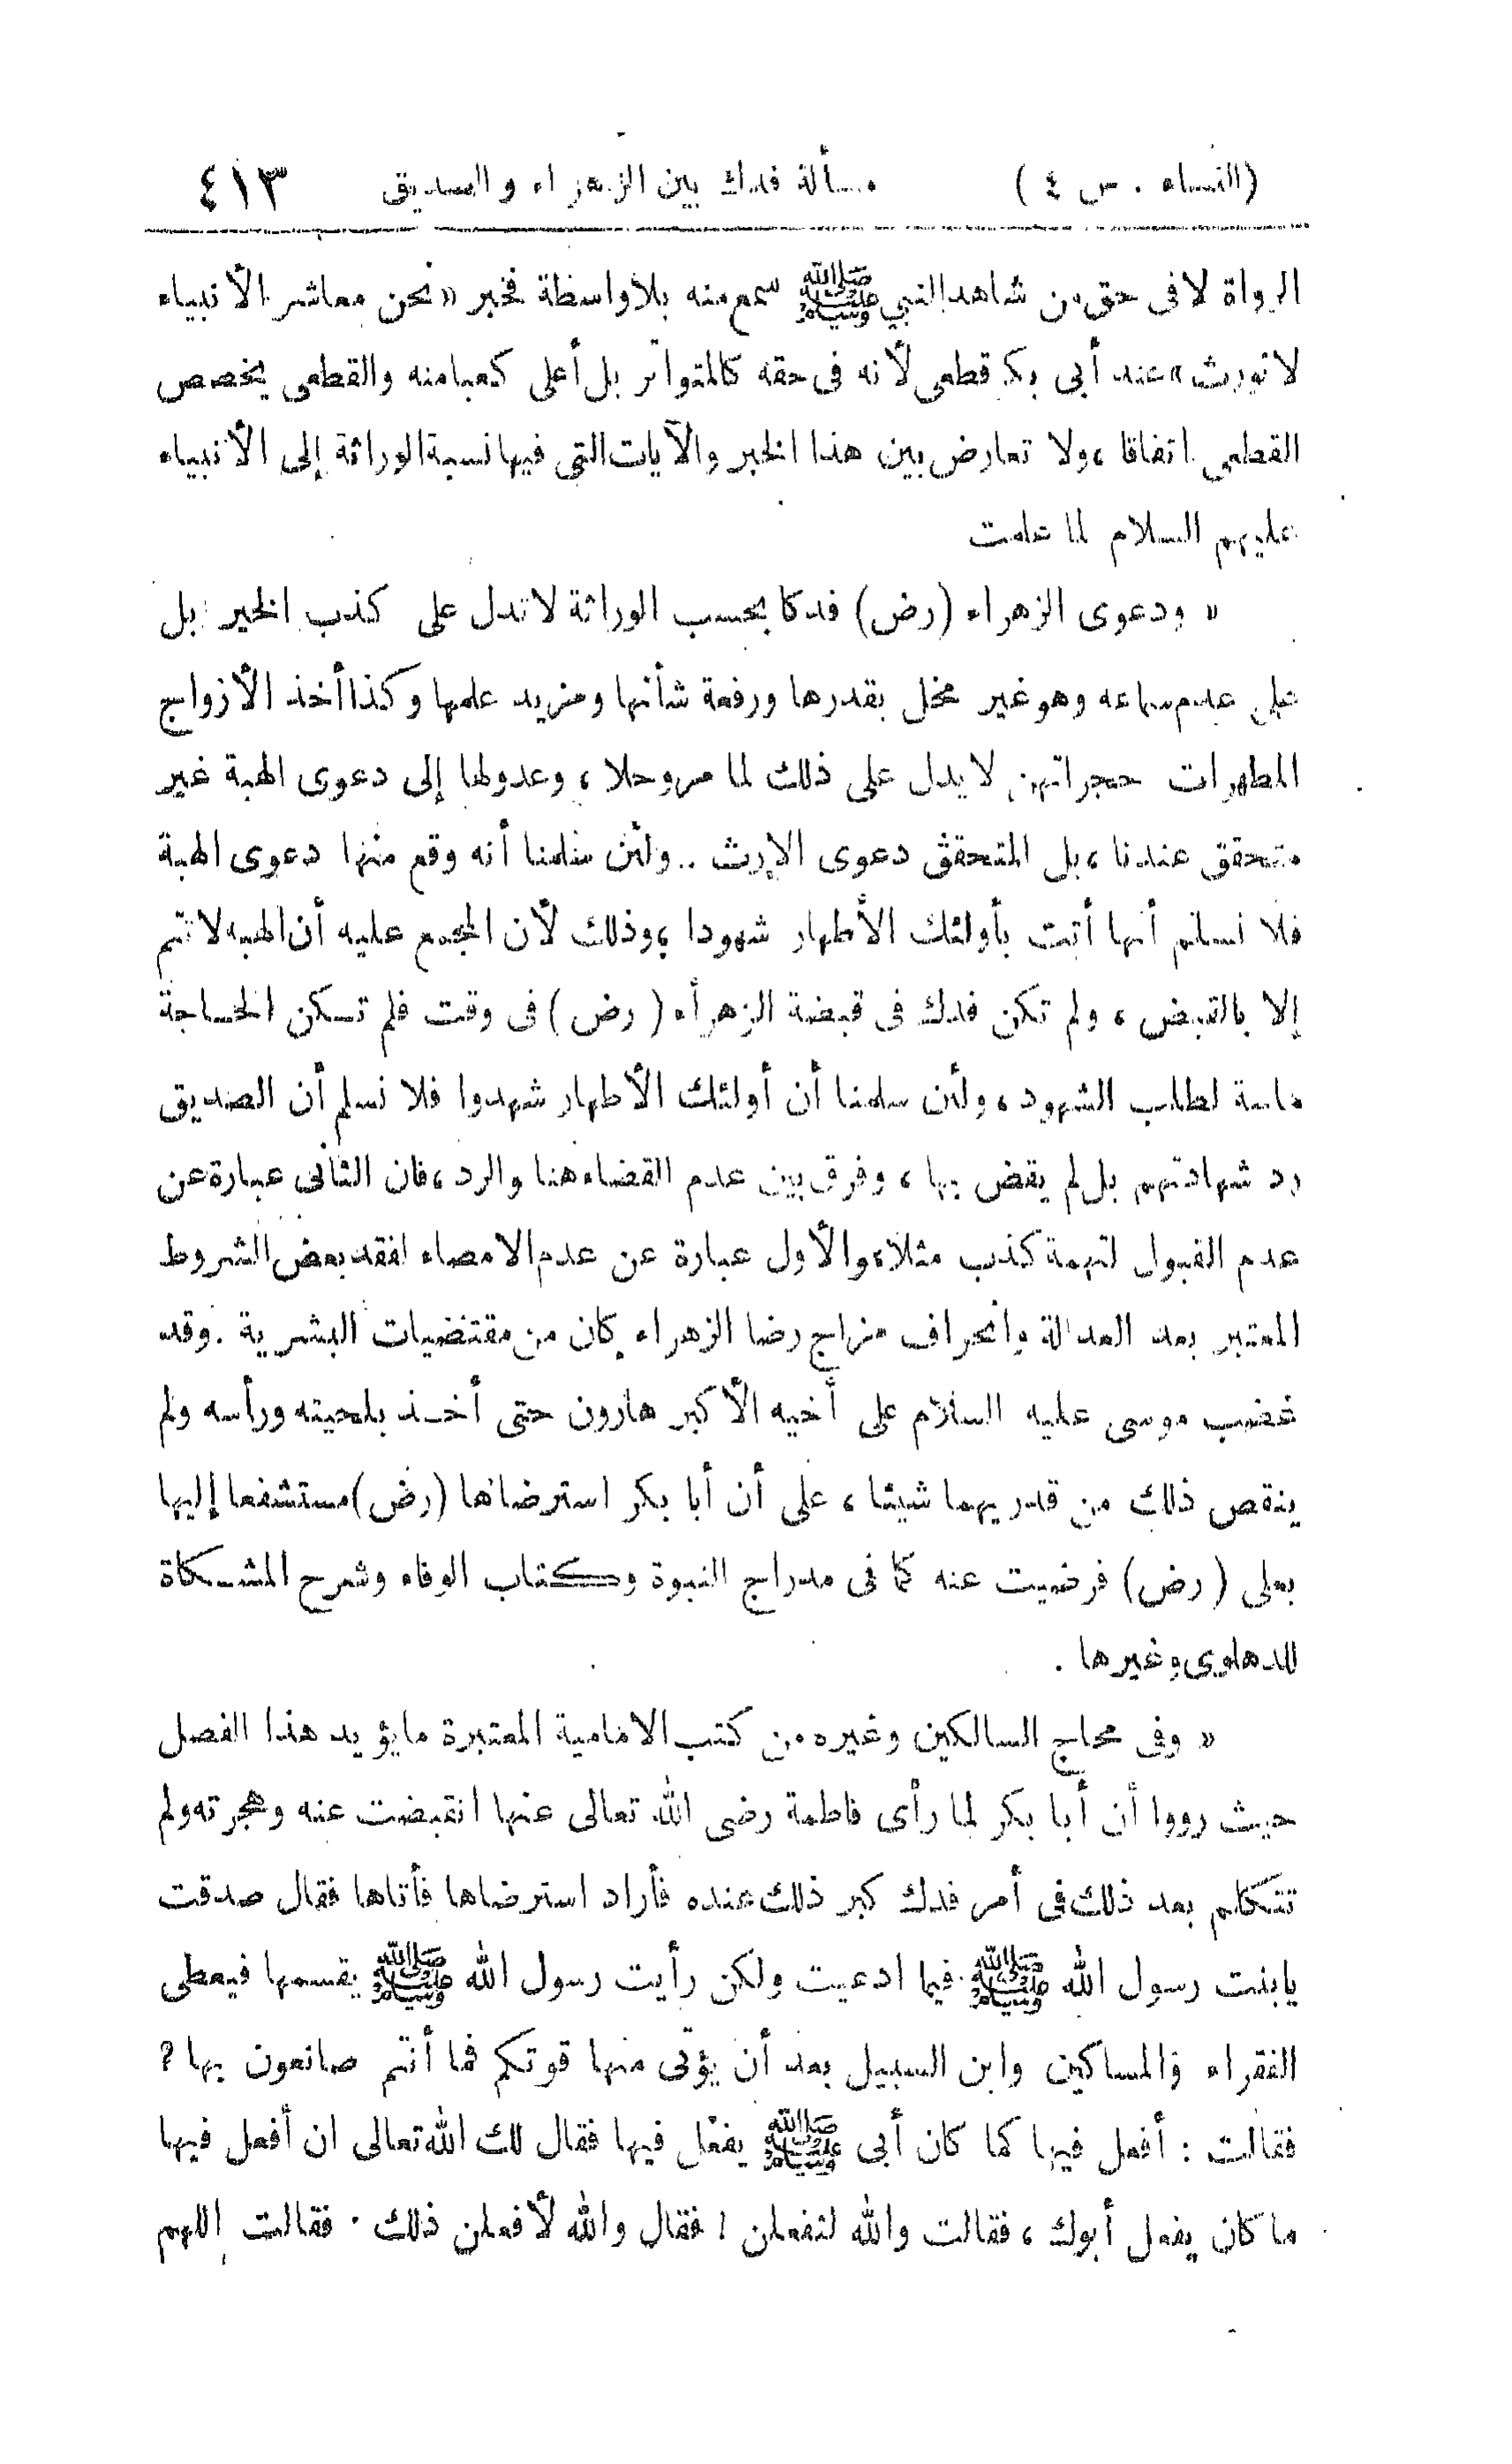 (النساء . س ٤) مسألة فدك بين الزهراء والصديق ٤١٣
الرواة لا فى حق من شاهد النبي ﷺ سمع منه بلا واسطة فخبر « نحن معاشر الأنبياء
لا نورث » عند أبى بكر قطعى لأنه فى حقه كالمتواتر بل أعلى كعبا منه والقطعى يخصص
القطعى اتفاقا ، ولا تعارض بين هذا الخبر والآيات التى فيها نسبة الوراثة إلى الأنبياء
عليهم السلام لما علمت
« ودعوى الزهراء (رض) فدكا بحسب الوراثة لا تدل على كذب الخبر بل
على عدم سماعه وهو غير مخل بقدرها ورفعة شأنها ومزيد علمها وكذا أخذ الأزواج
المطهرات حجراتهن لا يدل على ذلك لما مر وحلا ، وعدولها إلى دعوى الهبة غير
متحقق عندنا ، بل المتحقق دعوى الإرث .. ولئن سلمنا أنه وقع منها دعوى الهبة
فلا نسلم أنها أتت بأولئك الأطهار شهودا ، وذلك لأن المجمع عليه أن الهبه لا تتم
إلا بالقبض ، ولم تكن فدك فى قبضة الزهراء (رض) فى وقت فلم تكن الحاجة
ماسة لطلب الشهود ، ولئن سلمنا أن أولئك الأطهار شهدوا فلا نسلم أن الصديق
رد شهادتهم بل لم يقض بها ، وفرق بين عدم القضاء هنا والرد ، فان الثانى عبارة عن
عدم القبول لتهمة كذب مثلا ، والأول عبارة عن عدم الامضاء لفقد بعض الشروط
المعتبر بعد العدالة وانحراف مزاج رضا الزهراء كان من مقتضيات البشرية . وقد
غضب موسى عليه السلام على أخيه الأكبر هارون حتى أخذ بلحيته ورأسه ولم
ينقص ذلك من قدريهما شيئا ، على أن أبا بكر استرضاها (رض) مستشفعا إليها
بعلى (رض) فرضيت عنه كما فى مدراج النبوة وكتاب الوفاء وشرح المشكاة
للدهلوى وغيرها .
« وفى محاج السالكين وغيره من كتب الامامية المعتبرة ما يؤيد هذا الفصل
حيث رووا أن أبا بكر لما رأى فاطمة رضى الله تعالى عنها انقبضت عنه وهجرته ولم
تتكلم بعد ذلك فى أمر فدك كبر ذلك عنده فأراد استرضاها فأتاها فقال صدقت
يا بنت رسول الله ﷺ فيما ادعيت ولكن رأيت رسول الله ﷺ يقسمها فيعطى
الفقراء والمساكين وابن السبيل بعد أن يؤتى منها قوتكم فما أنتم صانعون بها ?
فقالت : أفعل فيها كما كان أبى ﷺ يفعل فيها فقال لك الله تعالى ان أفعل فيها
ما كان يفعل أبوك ، فقالت والله لتفعلن ! فقال والله لأفعلن ذلك . فقالت اللهم